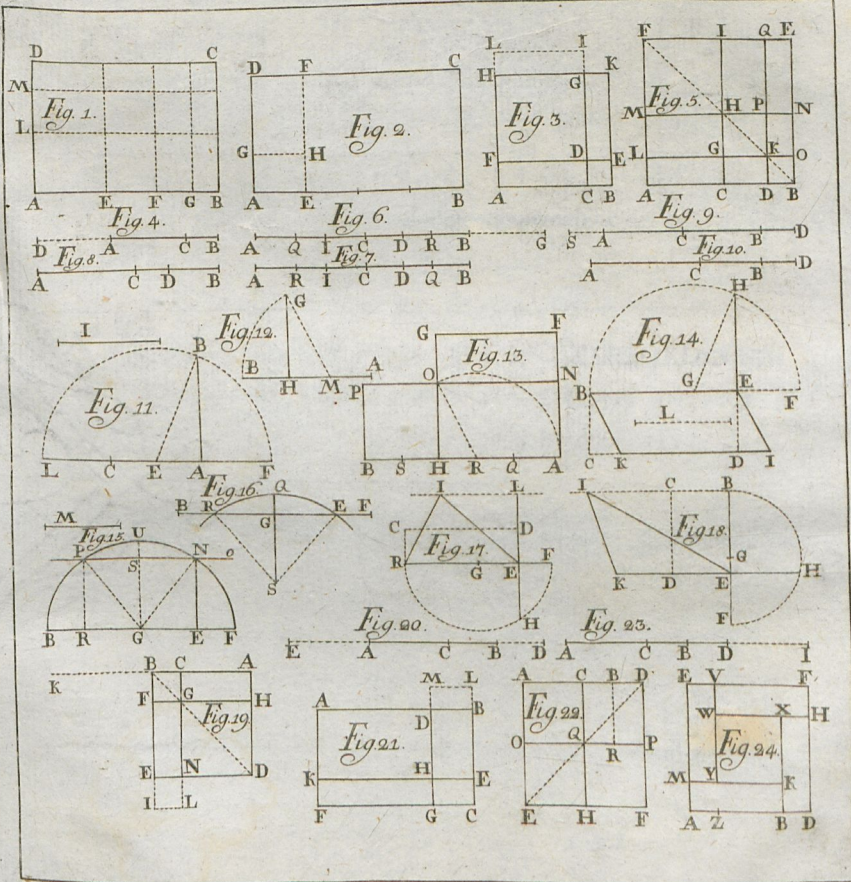 D C
M Fig. 1.
L
A E F G B
D F C
G H Fig. 2.
A E B
L I
H G K
Fig. 3.
F D E
A C B
F I Q E
Fig. 5.
M H P N
L G K O
A C D B
Fig. 4.
D A C B
Fig. 8.
A C D B
Fig. 6.
A Q I C D R B G
Fig. 7.
A R I C D Q B
Fig. 9.
S A C B D
Fig. 10.
A C B D
I
B
Fig. 11.
L C E A F
G
Fig. 12.
B H M A
G F
Fig. 13.
P O N
B S H R Q A
H
Fig. 14.
B G E F
L
C K D I
M
Fig. 15.
U
P S N O
B R G E F
Fig. 16.
Q
B R G E F
S
I L
C D
Fig. 17.
R G E F
H
I C B
Fig. 18.
G
K D E H
F
Fig. 20.
E A C B D
Fig. 23.
A C B D I
K B C A
F G H
Fig. 19.
E N D
I L
M L
A D B
Fig. 21.
K H E
F G C
A C B D
Fig. 22.
O Q R P
E H F
E V F
W X H
Fig. 24.
M Y K
A Z B D